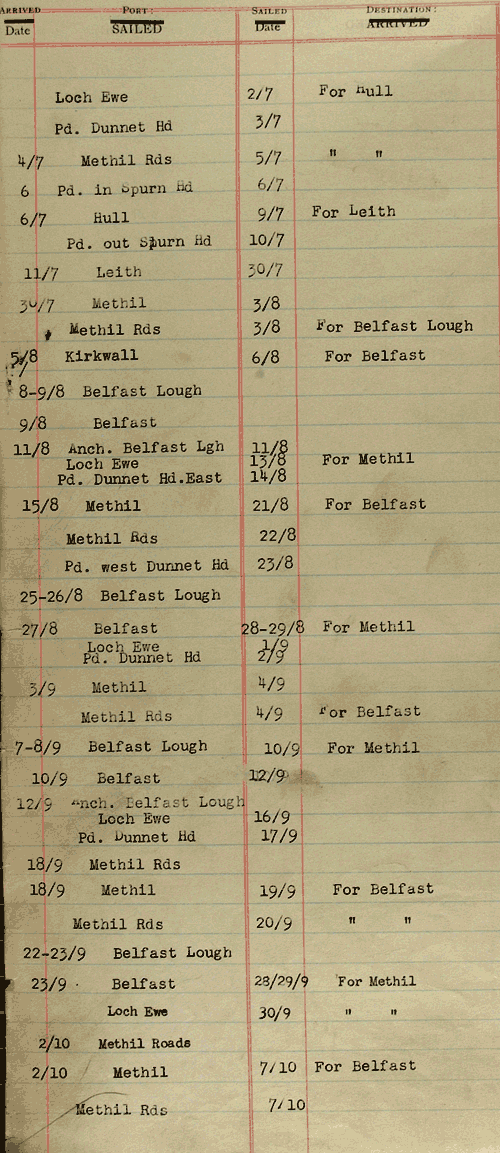 ARRIVED PORT: SAILED DESTINATION:
Date SAILED Date ARRIVED
Loch Ewe 2/7 For Hull
Pd. Dunnet Hd 3/7
4/7 Methil Rds 5/7 " "
6 Pd. in Spurn Hd 6/7
6/7 Hull 9/7 For Leith
Pd. out Spurn Hd 10/7
11/7 Leith 30/7
30/7 Methil 3/8
Methil Rds 3/8 For Belfast Lough
5/8 Kirkwall 6/8 For Belfast
8-9/8 Belfast Lough
9/8 Belfast
11/8 Anch. Belfast Lgh 11/8
Loch Ewe 13/8 For Methil
Pd. Dunnet Hd.East 14/8
15/8 Methil 21/8 For Belfast
Methil Rds 22/8
Pd. west Dunnet Hd 23/8
25-26/8 Belfast Lough
27/8 Belfast 28-29/8 For Methil
Loch Ewe 1/9
Pd. Dunnet Hd 2/9
3/9 Methil 4/9
Methil Rds 4/9 For Belfast
7-8/9 Belfast Lough 10/9 For Methil
10/9 Belfast 12/9
12/9 Anch. Belfast Lough
Loch Ewe 16/9
Pd. Dunnet Hd 17/9
18/9 Methil Rds
18/9 Methil 19/9 For Belfast
Methil Rds 20/9 " "
22-23/9 Belfast Lough
23/9 Belfast 28/29/9 For Methil
Loch Ewe 30/9 " "
2/10 Methil Roads
2/10 Methil 7/10 For Belfast
Methil Rds 7/10